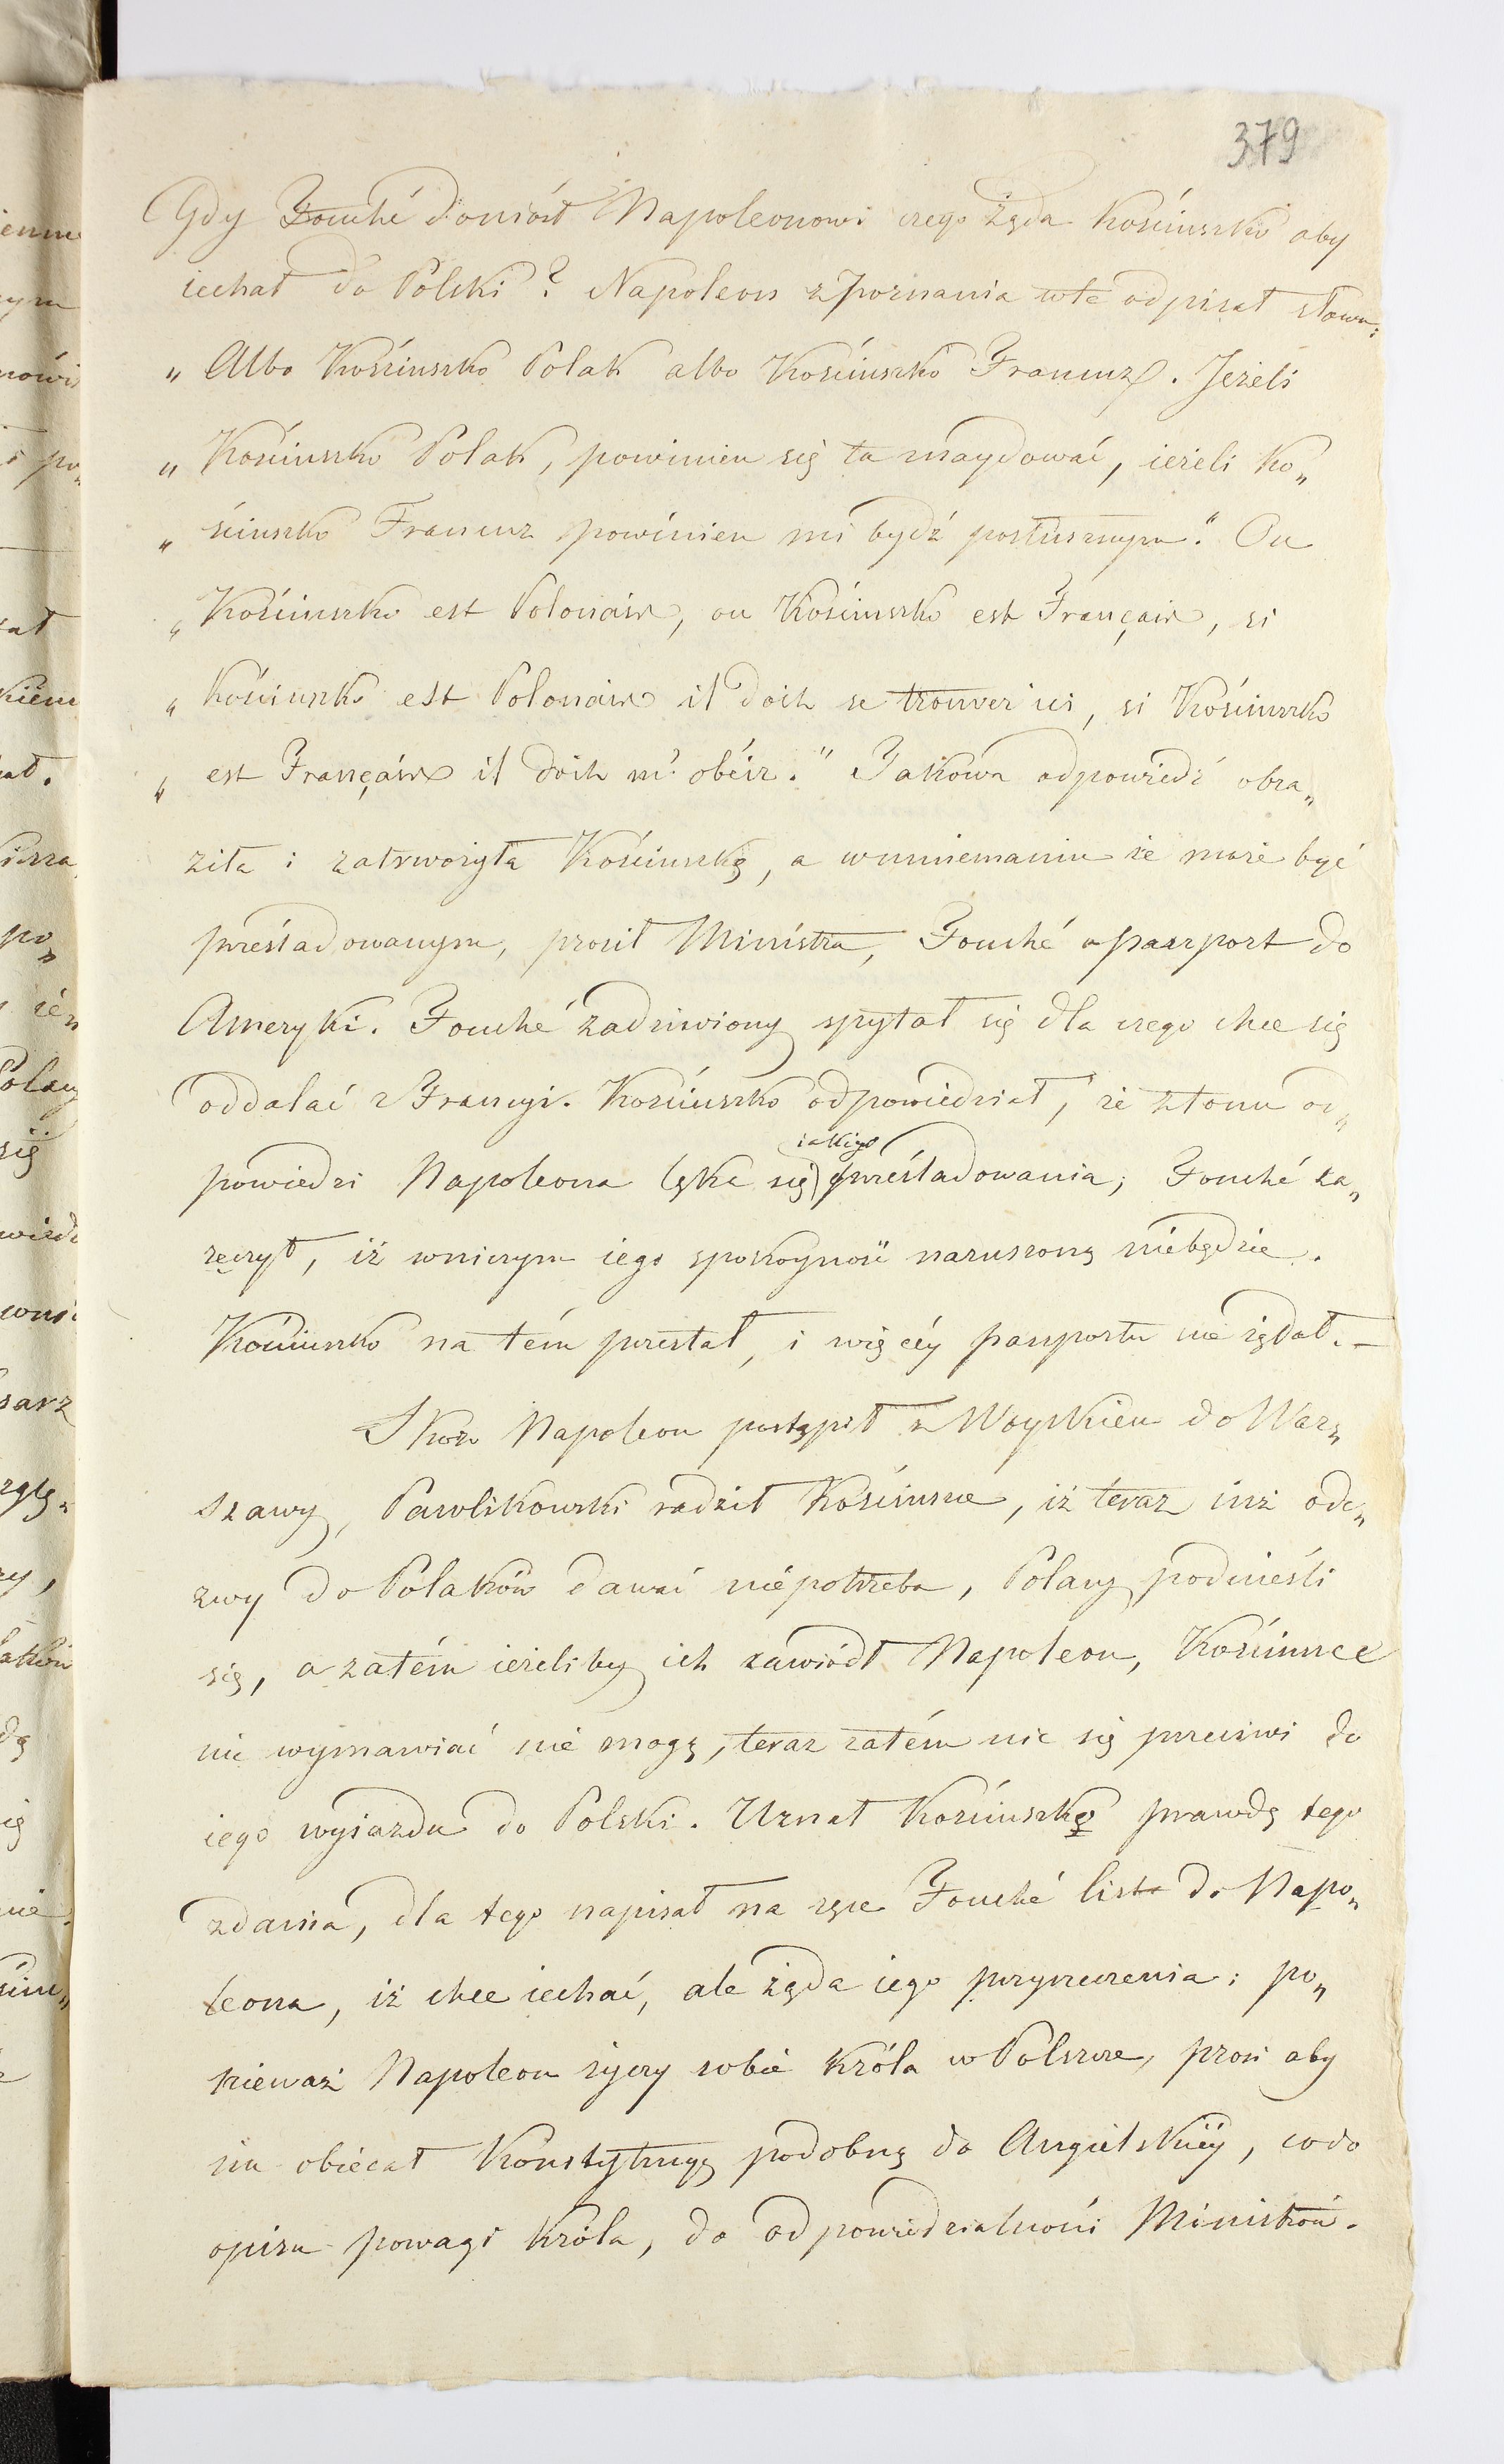 379
Gdy Fouché doniósł Napoleonowi czego żąda Kościuszko aby
iechał do Polski? Napoleon z Poznania w te odpisał słowa:
„ Albo Kościuszko Polak albo Kościuszko Francuz. Jeżeli
„ Kościuszko Polak, powinien się tu znaydować, ieżeli Ko„
„ ściuszko Francuz powinien mi bydź posłusznym." Ou
„ Kościuszko est Polonais, ou Kościuszko est Français, si
„ Kościuszko est Polonais il doit se trouver ici, si Kościuszko
„ est Français il doit m'obéir." Takowa odpowiedź obra„
ziła i zatrwożyła Kościuszkę, a wmniemaniu że może być
prześladowanym, prosił Ministra, Fouché o paszport do
Ameryki. Fouché zadziwiony spytał się dla czego chce się
oddalać z Francyi. Kościuszko odpowiedział, że z tonu od„
iakiego
powiedzi Napoleona lęka się prześladowania; Fouché za„
ręczył, iż wniczym iego spokoyność naruszoną niebędzie.
Kościuszko na tém przestał, i więcéy paszportu nie żądał. –
Skoro Napoleon postąpił z Woyskiem do War„
szawy, Pawlikowski radził Kościuszce, iż teraz iuż ode„
zwy do Polaków dawać niepotrzeba, Polacy podnieśli
się, a zatém ieżeliby ich zawiódł Napoleon, Kościuszce
nic wymawiać nie mogą, teraz zatém nic się przeciwi do
iego wyiazdu do Polski. Uznał Kościuszko prawdę tego
zdania, dla tego napisał na ręce Fouché list do Napo„
leona, iż chce iechać, ale żąda iego przyrzeczenia; po„
nieważ Napoleon życzy sobie Króla w Polszcze, prosi aby
im obiecał Konstytucyę podobną do Angielskiéy, co do
opisu powagi Króla, do odpowiedzialności Ministrów.